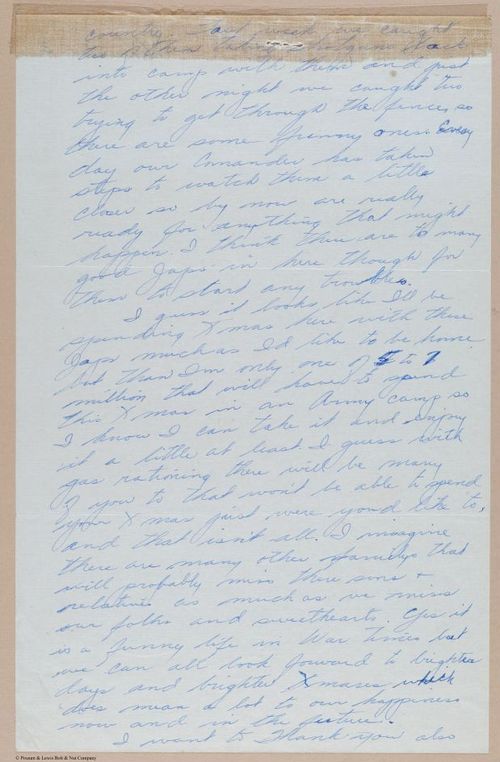 country. Last week we caught
two of them taking shotguns back
into camp with them and just
the other night we caught two
trying to get through the fence, so
there are some funny ones. Every
day our Comander has taken
steps to watch them a little
closer so by now are really
ready for anything that might
happen. I think there are to many
good Japs in here though for
them to start any troubles.
I guess it looks like I'll be
spending Xmas here with these
Japs much as I'd like to be home
but than I'm only one of 5 to 7
million that will have to spend
this Xmas in an Army camp so
I know I can take it and enjoy
it a little at least. I guess with
gas rationing there will be many
of you to that won't be able to spend
your Xmas just were you'd like to,
and that isn't all. I imagine
there are many other familys that
will probably miss there sons +
relatives as much as we miss
our folks and sweethearts. Yes it
is a funny life in War times but
we can all look foward to brighter
days and brighter Xmases which
does mean a lot to our happiness
now and in the future.
I want to Thank you also
© Peussn & Lewis Bolt & Nut Company